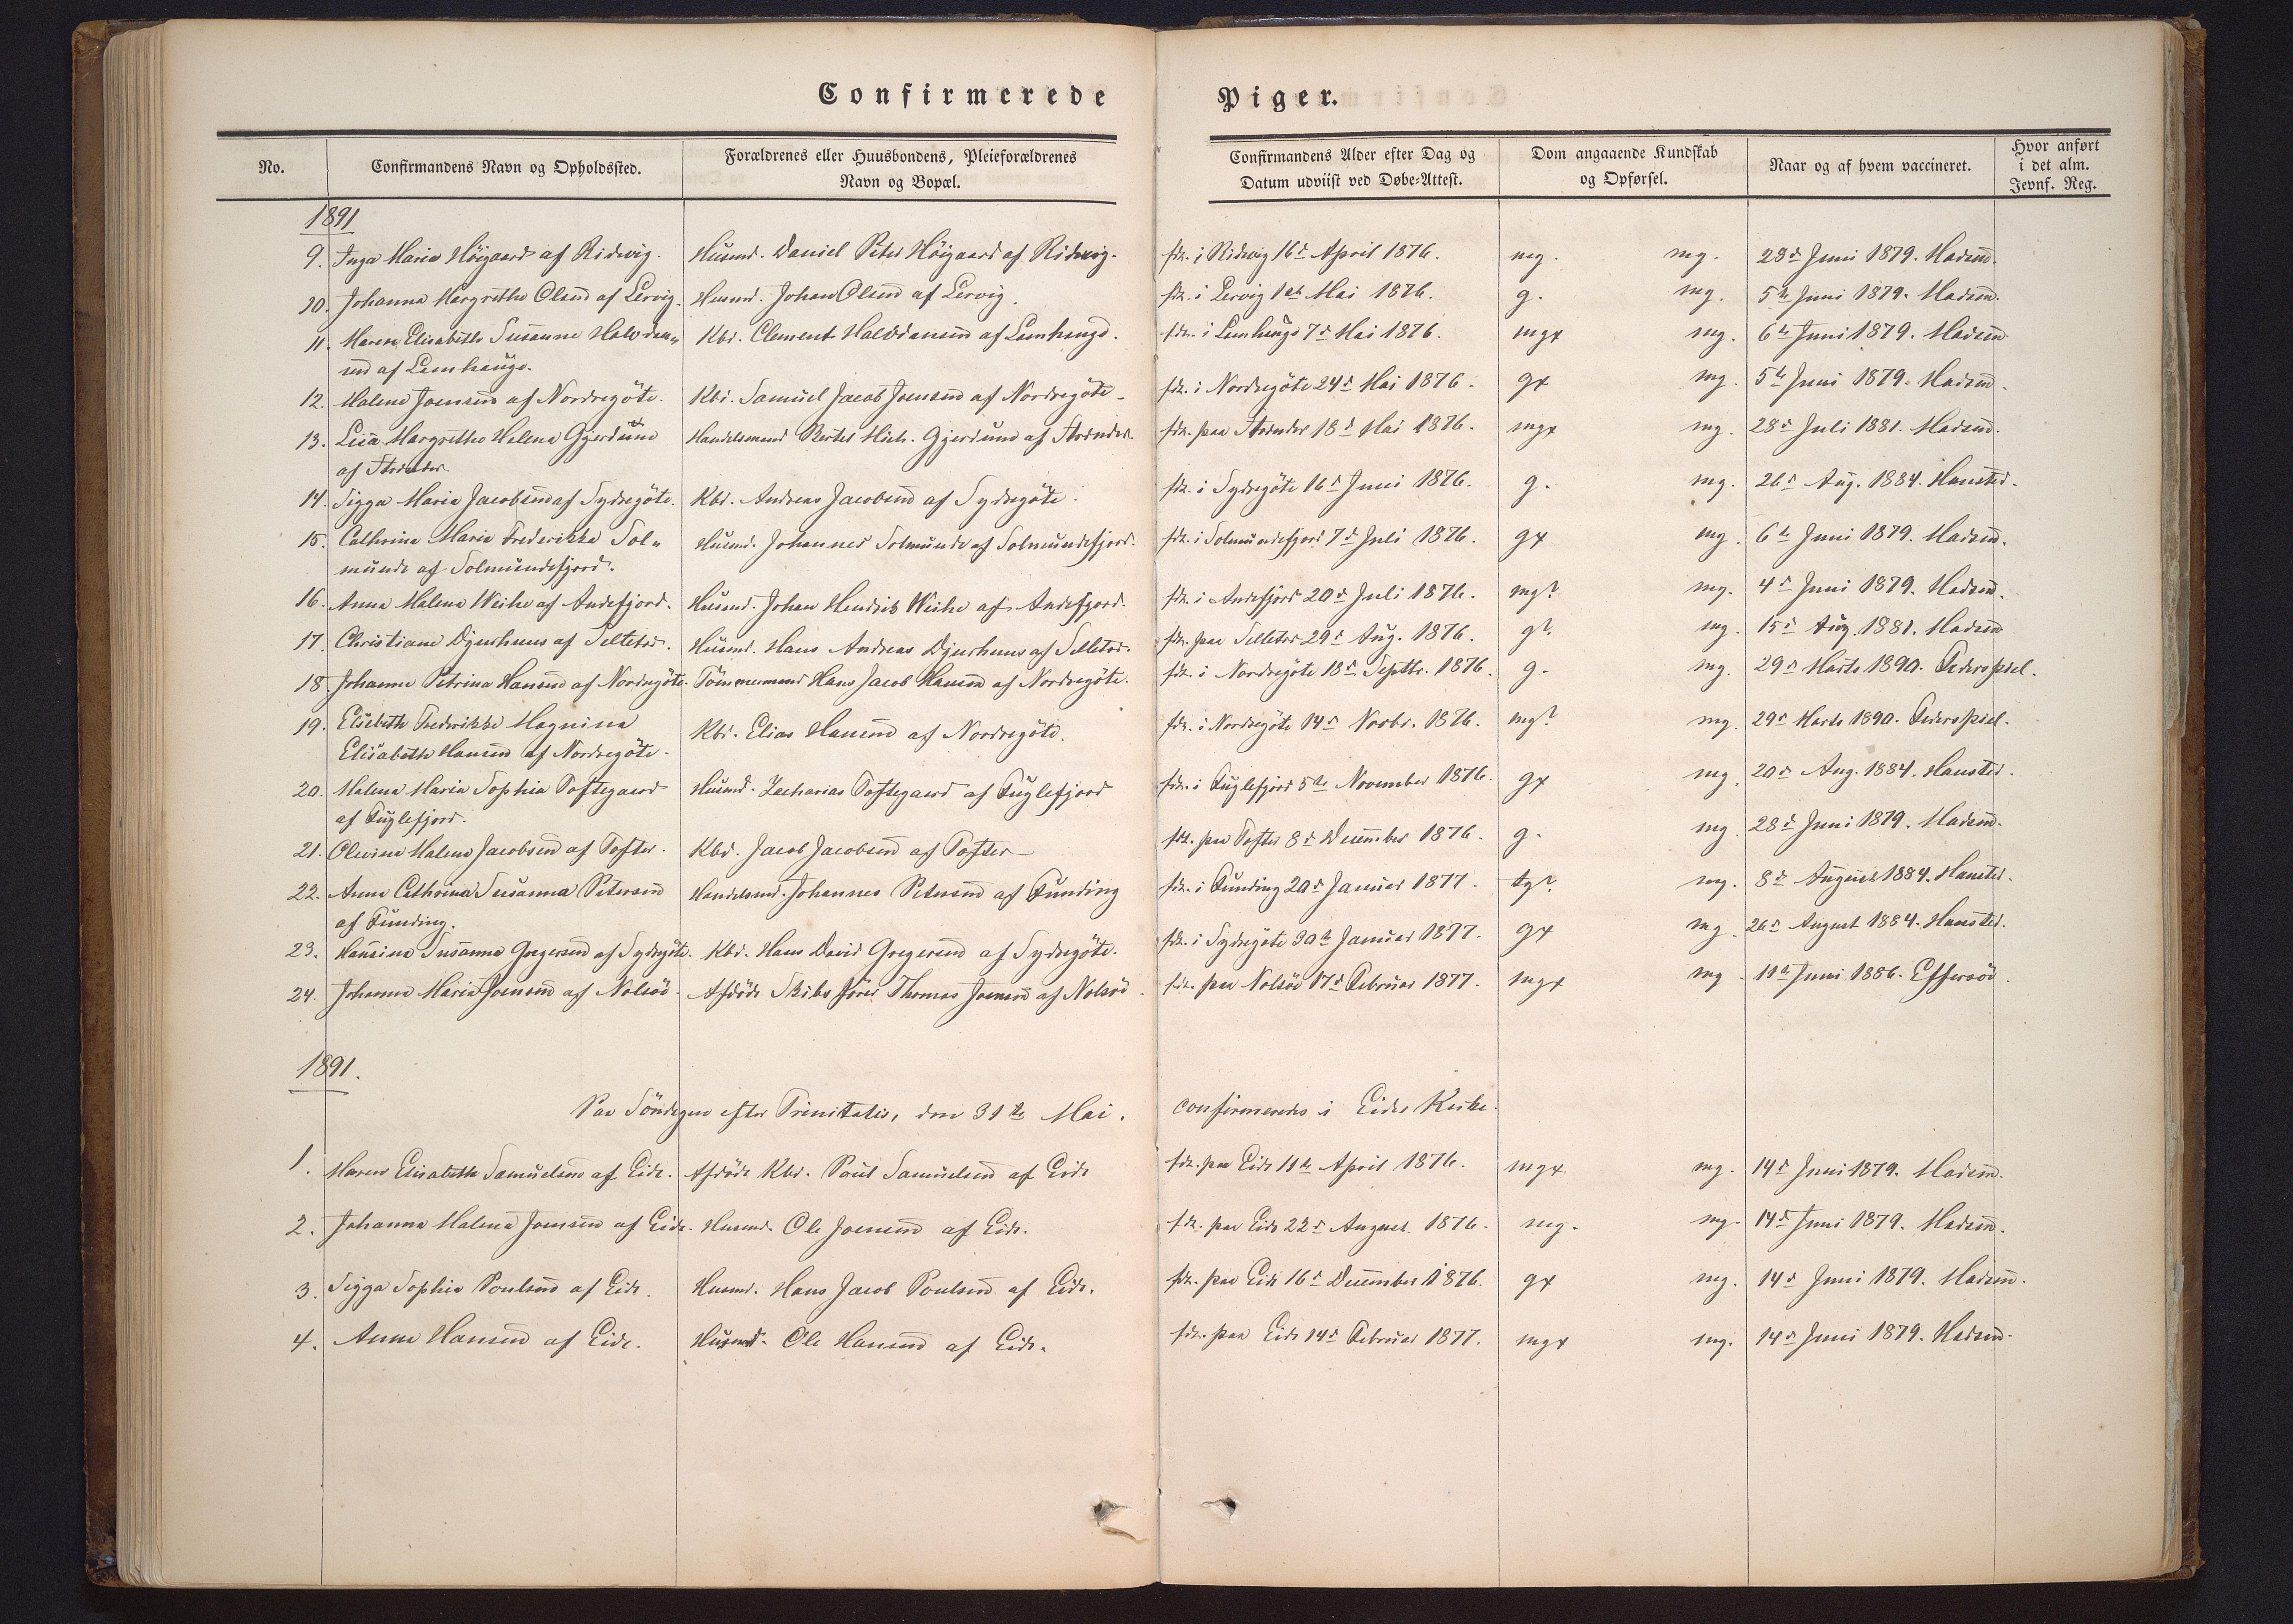 Confirmerede Piger.
No.
Confirmandens Navn og Opholdssted.
Forældrenes eller Huusbondens, Pleieforældrenes
Navn og Bopæl.
Confirmandens Alder efter Dag og
Datum udviist ved Døbe-Attest.
Dom angaaende Kundskab
og Opførsel.
Naar og af hvem vaccineret.
Hvor anført
i det alm.
Jevnf. Reg.
1891
9. Inga Maria Höigaard af Ridevig. Husmd. Daniel Peter Höigaard af Ridevig. fdt. i Ridevig 16d April 1876. mg. mg. 23d Juni 1879. Madsen.
10. Johanna Margrethe Olsen af Lervig. Husmd. Johan Olsen af Lervig. fdt. i Lervig 1ste Mai 1876. g. mg. 5te Juni 1879. Madsen.
11. Maren Elisabeth Susanne Halvdan„ Kbd. Clement Halvdansen af Lamhauge. fdt. i Lamhauge 7d Mai 1876. mgx mg. 6te Juni 1879. Madsen.
sen af Lamhauge.
12. Malene Joensen af Nordregöte. Kbd. Samuel Jacob Joensen af Nordregöte. fdt. i Nordregöte 24d Mai 1876. gx mg. 5te Juni 1879. Madsen.
13. Lisa Margrethe Helene Gjerdum Handelsmand Bertel Mich. Gjerdum af Strender. fdt. paa Strender 18d Mai 1876. mgx mg. 28d Juli 1881. Madsen.
af Strender.
14. Sigga Maria Jacobsen af Sydregöte. Kbd. Andreas Jacobsen af Sydregöte. fdt. i Sydregöte 16d Juni 1876. g. mg. 26d Aug. 1884. Hansted.
15. Cathrine Marie Frederikke Sol„ Husmd. Johannes Solmunde af Solmundefjord. fdt. i Solmundefjord 7d Juli 1876. gx mg. 6te Juni 1879. Madsen.
munde af Solmundefjord.
16. Anna Malene Weihe af Andefjord. Husmd. Johan Hendrik Weihe af Andefjord. fdt. i Andefjord 20d Juli 1876. mg? mg. 4d Juni 1879. Madsen.
17. Christiane Djurhuus af Selletrö. Husmd. Hans Andreas Djurhuus af Selletrö. fdt. paa Selletrö 29d Aug. 1876. g? mg. 15d Aug. 1881. Madsen
18. Johanne Petrina Hansen af Nordregöte. Tömmermand Hans Jacob Hansen af Nordregöte. fdt. i Nordregöte 18d Septbr. 1876. g. mg. 29d Marts 1890. Federspiel.
19. Elsebeth Frederikke Magnina Kbd. Elias Hansen af Nordregöte. fdt. i Nordregöte 14d Novbr. 1876. mg? mg. 29d Marts 1890. Federspiel.
Elisabeth Hansen af Nordregöte.
20. Malene Maria Sophia Toftegaard Husmd. Zacharias Toftegaard af Fuglefjord fdt. i Fuglefjord 5te November 1876. gx mg. 20d Aug. 1884. Hansted.
af Fuglefjord.
21. Olevine Malene Jacobsen af Tofter. Kbd. Jacob Jacobsen af Tofter fdt. paa Tofter 8d December 1876. g. mg. 28d Juni 1879. Madsen.
22. Anna Cathrina Susanna Petersen Handelsmd. Johannes Petersen af Funding fdt. i Funding 20d Januar 1877. tg? mg. 8d August 1884. Hansted.
af Funding.
23. Hansine Susanna Gregersen af Sydregöte. Kbd. Hans David Gregersen af Sydregöte. fdt. i Sydregöte 30te Januar 1877. gx mg. 26d August 1884. Hansted.
24. Johanna Maria Joensen af Nolsöe. Afdöde Skibsförer Thomas Joensen af Nolsöe. fdt. paa Nolsöe 17d Februar 1877. mgx mg. 11te Juni 1886. Effersöe.
1891.
Paa Söndagen efter Trinitatis, den 31te Mai. confirmeredes i Eides Kirke.
1. Maren Elisabeth Samuelsen af Eide. Afdöde Kbd. Poul Samuelsen af Eide fdt. paa Eide 11te April 1876. mgx mg. 14d Juni 1879. Madsen.
2. Johanna Malena Joensen af Eide. Husmd. Ole Joensen af Eide. fdt. paa Eide 22d August 1876. mg. mg. 14d Juni 1879. Madsen.
3. Sigga Sophia Poulsen af Eide. Husmd. Hans Jacob Poulsen af Eide. fdt. paa Eide 16d December 1876. gx mg. 14d Juni 1879. Madsen.
4. Anna Hansen af Eide. Husmd. Ole Hansen af Eide. fdt. paa Eide 14d Februar 1877. mgx mg. 14d Juni 1879. Madsen.